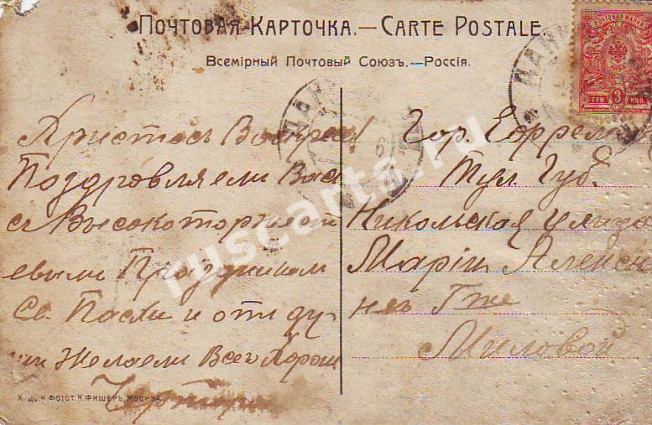 Почтовая Карточка.—Carte Postale.
Всемірный Почтовый Союзъ.—Россія.
Христосъ Воскрес
Поздровляели Вас
съ Высокоторжест
евыли Праздником
Св. Пасхи и отл ду
ши Желаели Всего Хорош
Гор.
Тул. Губ.
Никольская улица
Маріи Алексе
Гже
Миловой
три 3 коп
ruscarts.ru
Х-до. К. Фотот. К. Фишеръ, Москва.